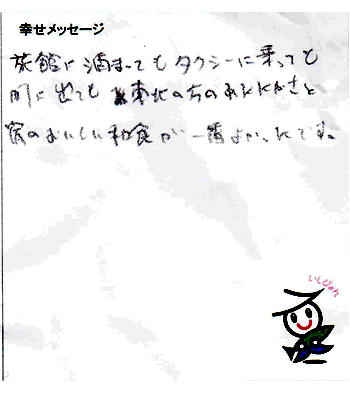 幸せメッセージ
旅館に泊まってもタクシーに乗っても
町に出ても東北の方のあたたかさと
宿のおいしい和食が一番よかったです。
いしぴょん